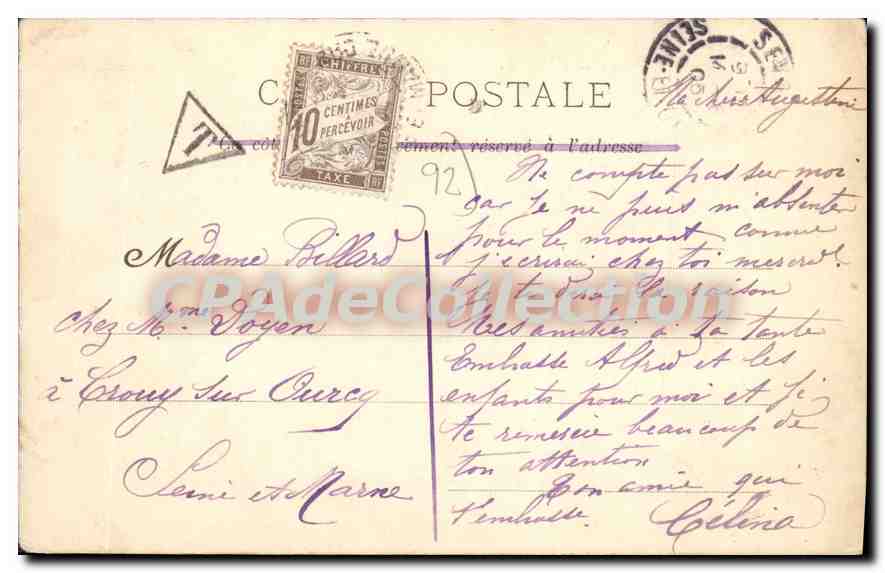 CARTE POSTALE
Ce côté rement réservé à l'adresse
T
CHIFFRE
10 CENTIMES
A
PERCEVOIR
POSTES
TAXE
RF
SEINE
92
Ma chère Augustine
Ne compte pas sur moi
car je ne puis m'absenter
pour le moment comme
j'écrirai chez toi mercredi
je te dirai la raison
Mes amitiés à ta tante
Embrasse Alfred et les
enfants pour moi et je
te remercie beaucoup de
ton attention
Ton amie qui
t'embrasse. Célina
Madame Billard
chez Mme Doyen
à Crouy sur Ourcq
Seine et Marne
CPAdeCollection